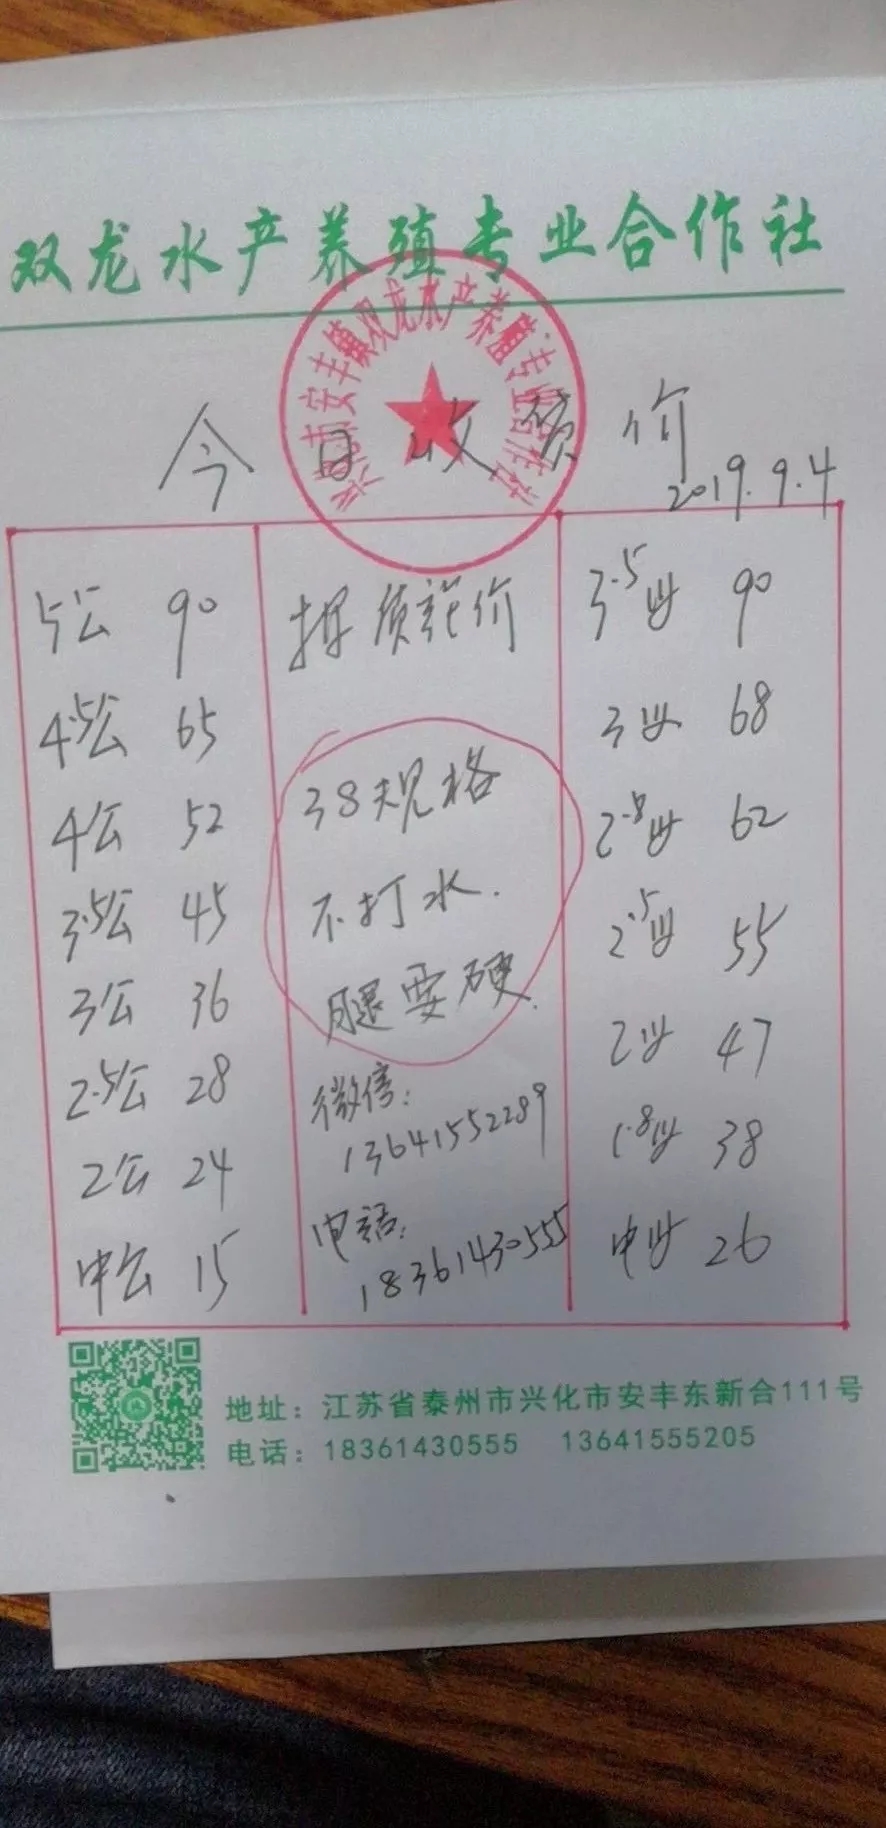 双龙水产养殖专业合作社
兴化市安丰镇双龙水产养殖专业合作社
今日收货价
2019.9.4
5公 90
4.5公 65
4公 52
3.5公 45
3公 36
2.5公 28
2公 24
中公 15
按质论价
38规格
不打水.
腿要硬.
微信:
13641552289
电话:
18361430555
3.5母 90
3母 68
2.8母 62
2.5母 55
2母 47
1.8母 38
中母 26
地址：江苏省泰州市兴化市安丰东新合111号
电话：18361430555 13641555205